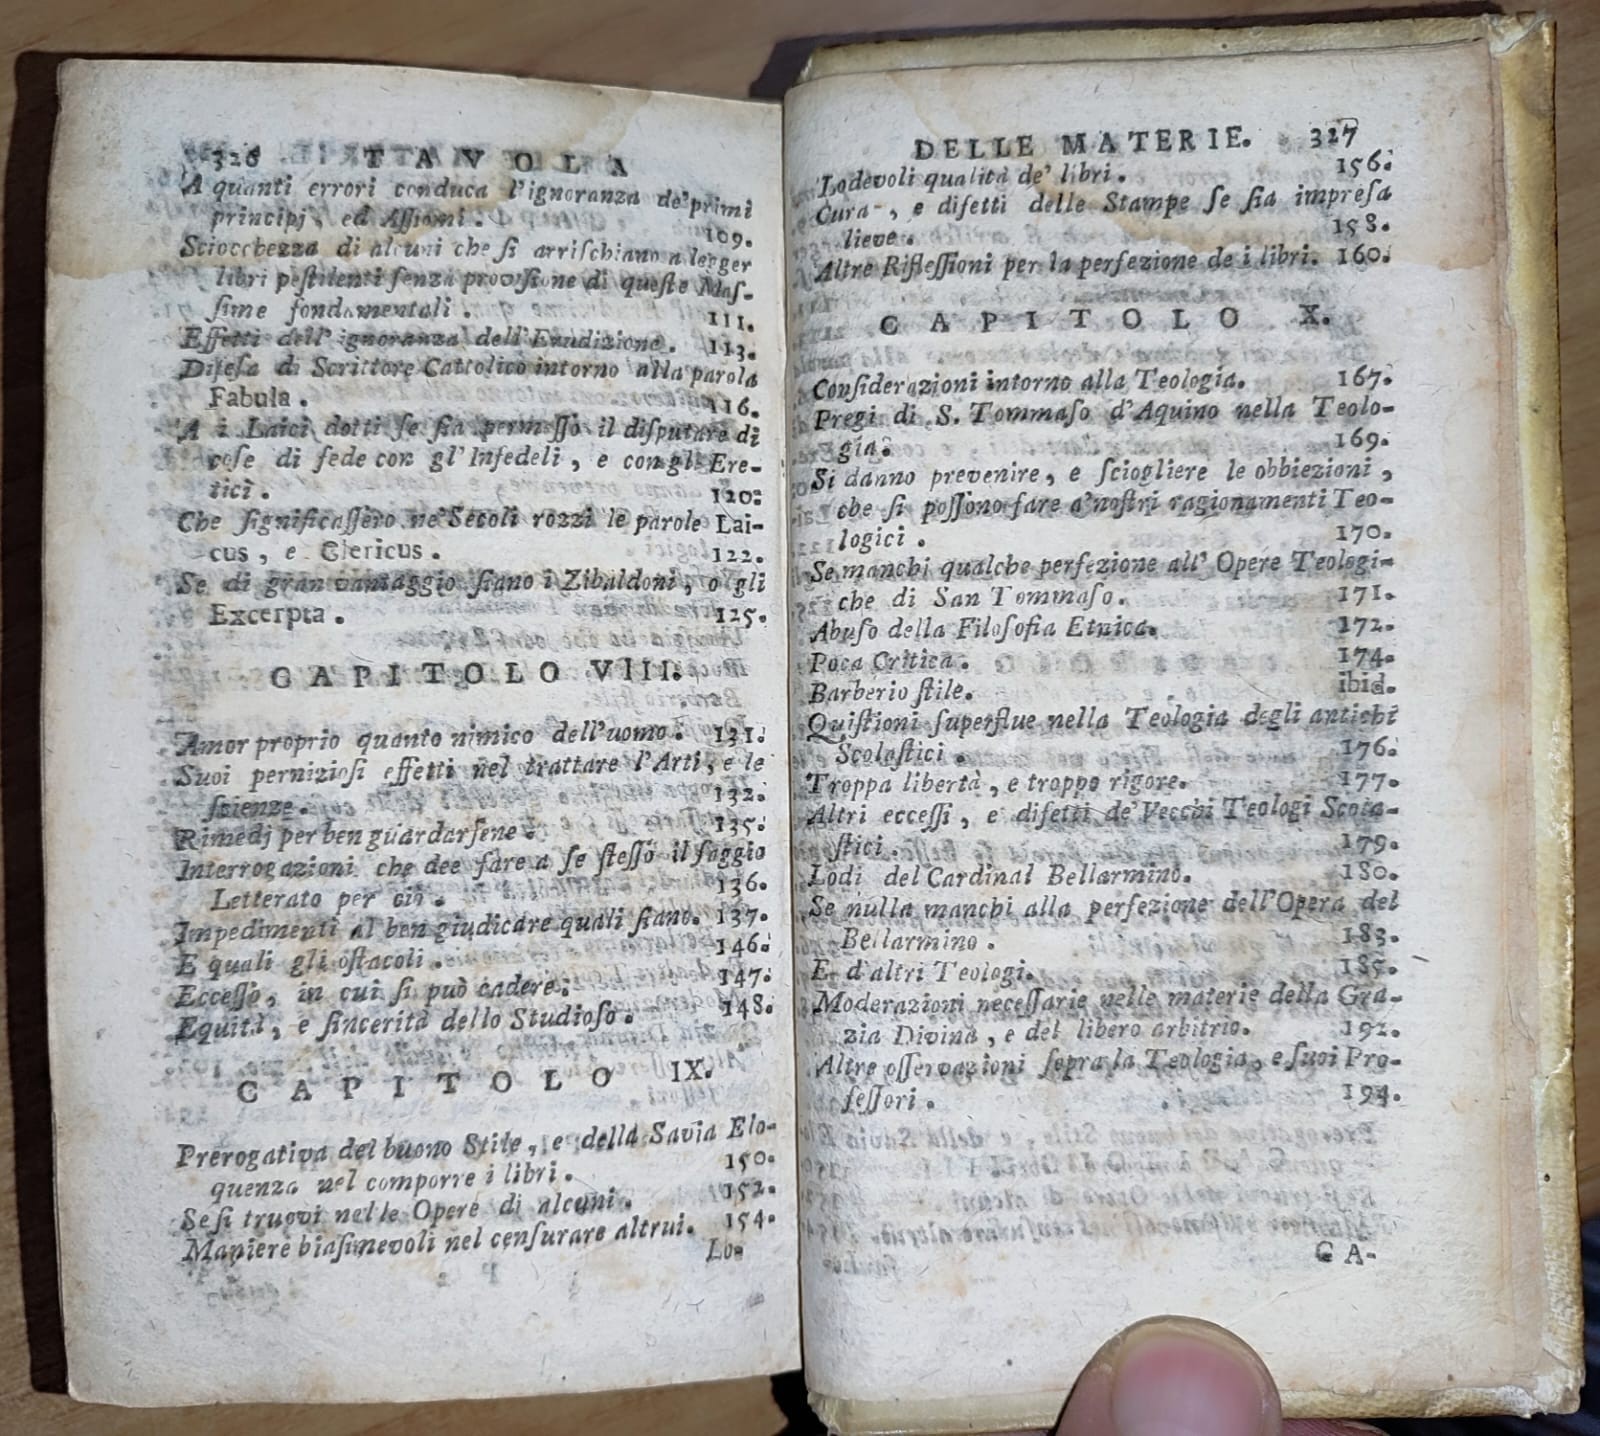 326 TAVOLA
A quanti errori conduca l'ignoranza de' primi
principj, ed Assiomi. 109.
Sciocchezza di alcuni che si arrischiano a legger
libri pestilenti senza provisione di queste Mas-
sime fondamentali. 111.
Effetti dell'ignoranza dell'Erudizione. 113.
Difesa di Scrittore Cattolico intorno alla parola
Fabula. 116.
A i Laici dotti se sia permesso il disputare di
cose di fede con gl'Infedeli, e con gl' Ere-
tici. 120.
Che significassero ne' Secoli rozzi le parole Lai-
cus, e Clericus. 122.
Se di gran vantaggio siano i Zibaldoni, o gli
Excerpta. 125.
CAPITOLO VIII.
Amor proprio quanto nimico dell'uomo. 131.
Suoi perniziosi effetti nel trattare l'Arti, e le
scienze. 132.
Rimedj per ben guardarsene. 135.
Interrogazioni che dee fare a se stesso il saggio
Letterato per ciò. 136.
Impedimenti al ben giudicare quali siano. 137.
E quali gli ostacoli. 146.
Eccesso, in cui si può cadere. 147.
Equità, e sincerità dello Studioso. 148.
CAPITOLO IX.
Prerogativa del buono Stile, e della Savia Elo-
quenza nel comporre i libri. 150.
Se si truovi nelle Opere di alcuni. 152.
Maniere biasimevoli nel censurare altrui. 154.
Lo-
DELLE MATERIE. 327
Lodevoli qualità de' libri. 156.
Cura, e difetti delle Stampe se sia impresa
lieve. 158.
Altre Riflessioni per la perfezione de i libri. 160.
CAPITOLO X.
Considerazioni intorno alla Teologia. 167.
Pregi di S. Tommaso d'Aquino nella Teolo-
gia. 169.
Si danno prevenire, e sciogliere le obbiezioni,
che si possono fare a'nostri ragionamenti Teo-
logici. 170.
Se manchi qualche perfezione all' Opere Teologi-
che di San Tommaso. 171.
Abuso della Filosofia Etnica. 172.
Poca Critica. 174.
Barberio stile. ibid.
Quistioni superflue nella Teologia degli antichi
Scolastici. 176.
Troppa libertà, e troppo rigore. 177.
Altri eccessi, e difetti de' Vecchi Teologi Scola-
stici. 179.
Lodi del Cardinal Bellarmino. 180.
Se nulla manchi alla perfezione dell'Opera del
Bellarmino. 183.
E d'altri Teologi. 185.
Moderazioni necessarie nelle materie della Gra-
zia Divina, e del libero arbitrio. 192.
Altre osservazioni sopra la Teologia, e suoi Pro-
fessori. 194.
CA-